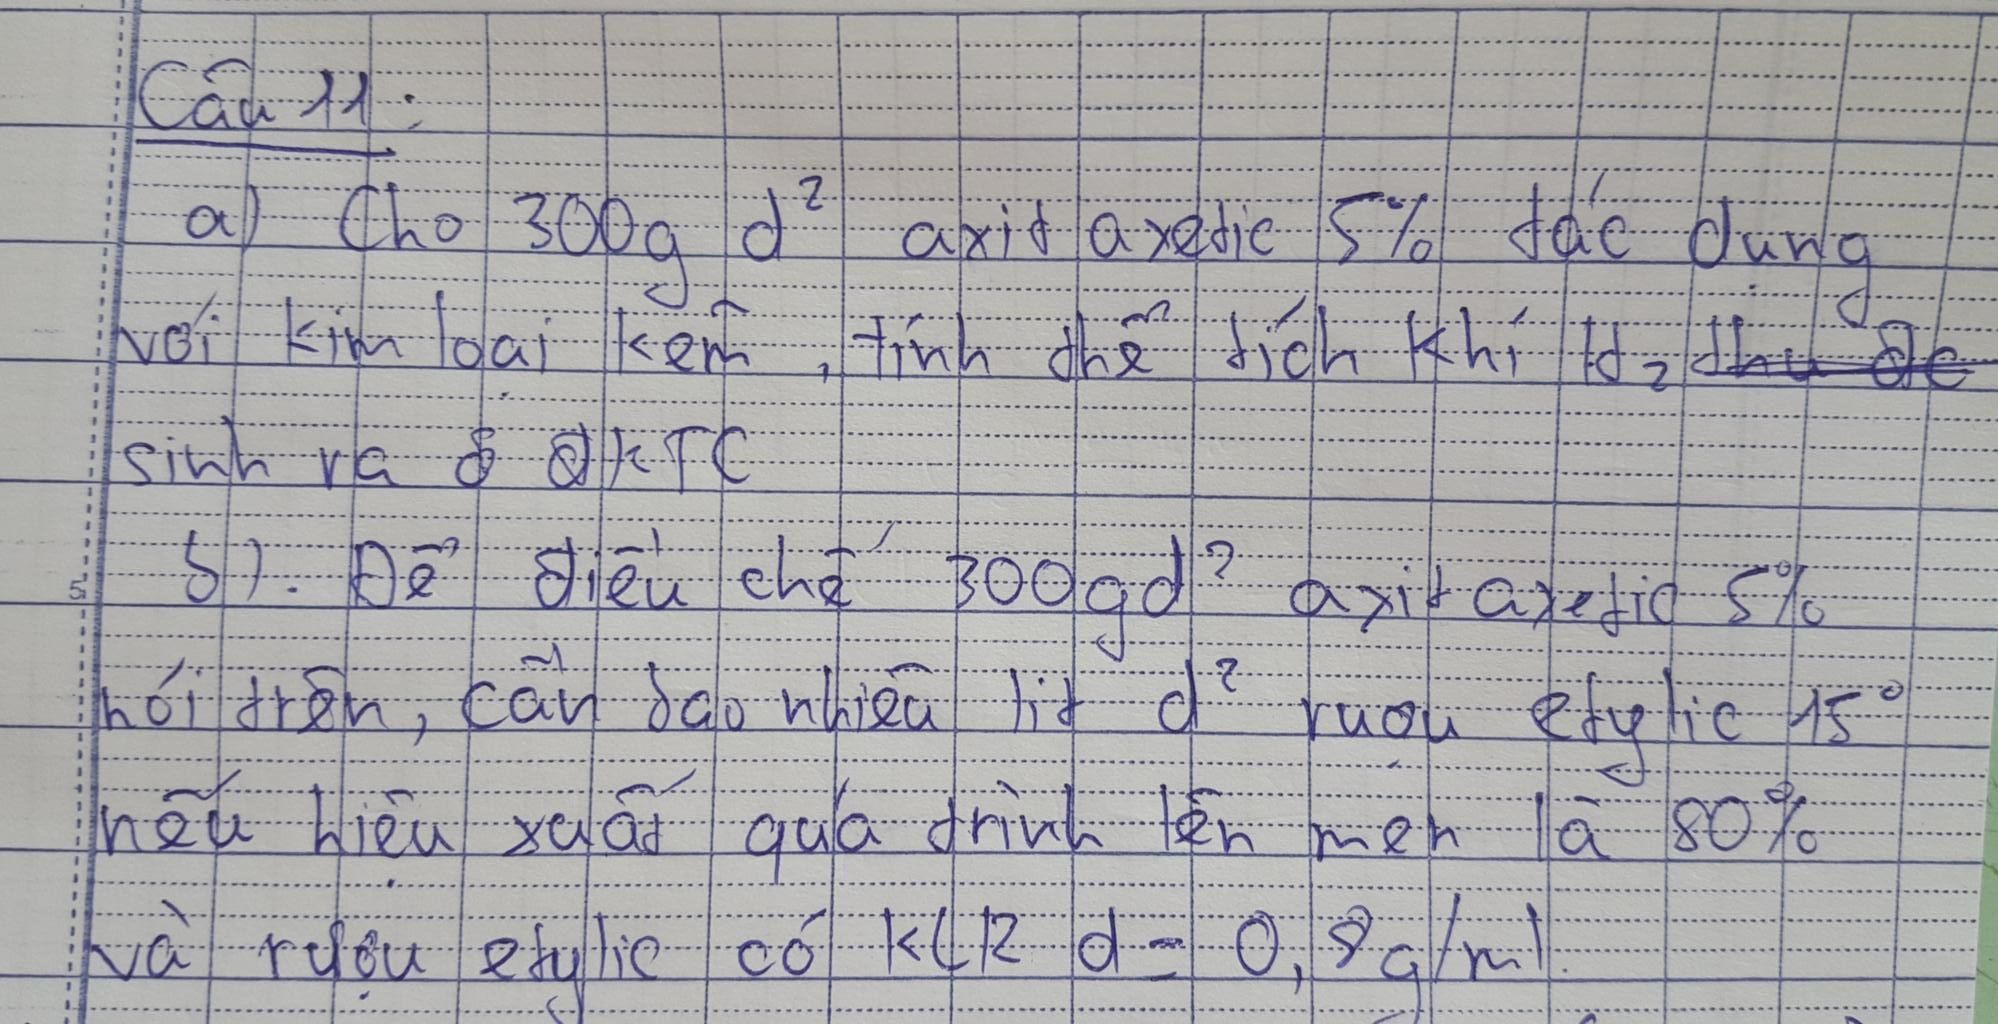 Câu 11:
a) Cho 300g d² axit axetic 5% tác dụng
với kim loại kẽm, tính thể tích khí H₂ thu đc
sinh ra ở ĐKTC
b). Để điều chế 300g d² axit axetic 5%
nói trên, cần bao nhiêu lit d² rượu etylic 15°
nếu hiệu xuất quá trình lên men là 80%
và rượu etylic có KLR d = 0,8g/ml.